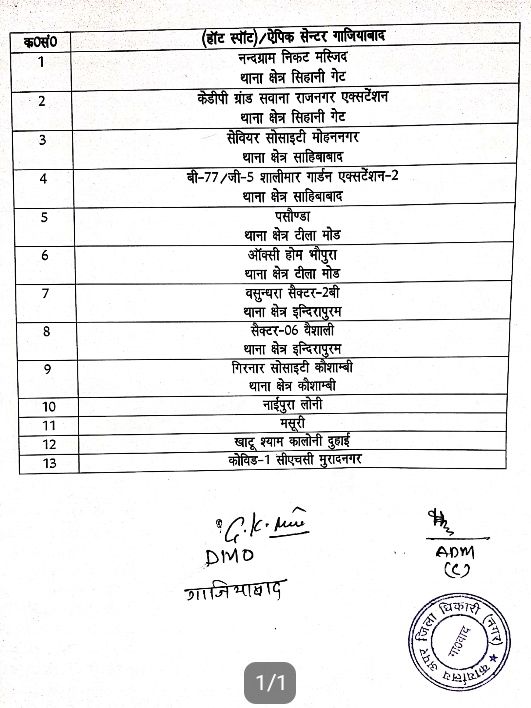 क0सं0 (हॉट स्पॉट)/ऐपिक सेन्टर गाजियाबाद
1 नन्दग्राम निकट मस्जिद
थाना क्षेत्र सिहानी गेट
2 केडीपी ग्रांड सवाना राजनगर एक्सटेंशन
थाना क्षेत्र सिहानी गेट
3 सेवियर सोसाइटी मोहननगर
थाना क्षेत्र साहिबाबाद
4 बी-77/जी-5 शालीमार गार्डन एक्सटेंशन-2
थाना क्षेत्र साहिबाबाद
5 पसौण्डा
थाना क्षेत्र टीला मोड
6 ऑक्सी होम भौपुरा
थाना क्षेत्र टीला मोड
7 वसुन्धरा सैक्टर-2बी
थाना क्षेत्र इन्दिरापुरम
8 सैक्टर-06 वैशाली
थाना क्षेत्र इन्दिरापुरम
9 गिरनार सोसाइटी कौशाम्बी
थाना क्षेत्र कौशाम्बी
10 नाईपुरा लोनी
11 मसूरी
12 खाटू श्याम कालोनी दुहाई
13 कोविड-1 सीएचसी मुरादनगर
G.K.
DMO
गाजियाबाद
ADM
(C)
कार्यालय अपर जिला धिकारी (नगर)
1/1